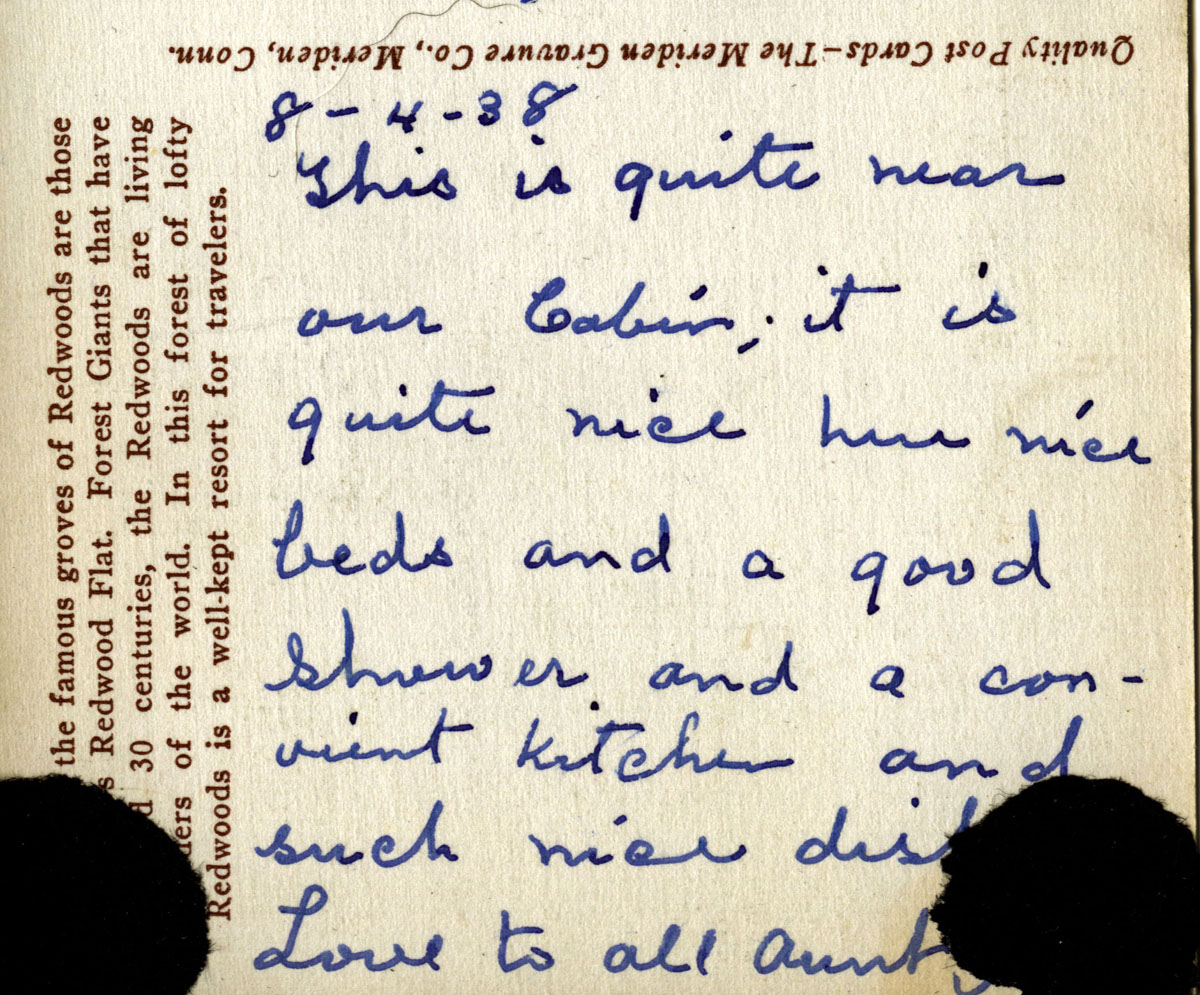 Quality Post Cards–The Meriden Gravure Co., Meriden, Conn.
the famous groves of Redwoods are those
Redwood Flat. Forest Giants that have
30 centuries, the Redwoods are living
of the world. In this forest of lofty
Redwoods is a well-kept resort for travelers.
8-4-38
This is quite near
our Cabin; it is
quite nice here nice
beds and a good
shower and a con-
vient kitchen and
such nice
Love to all Aunt